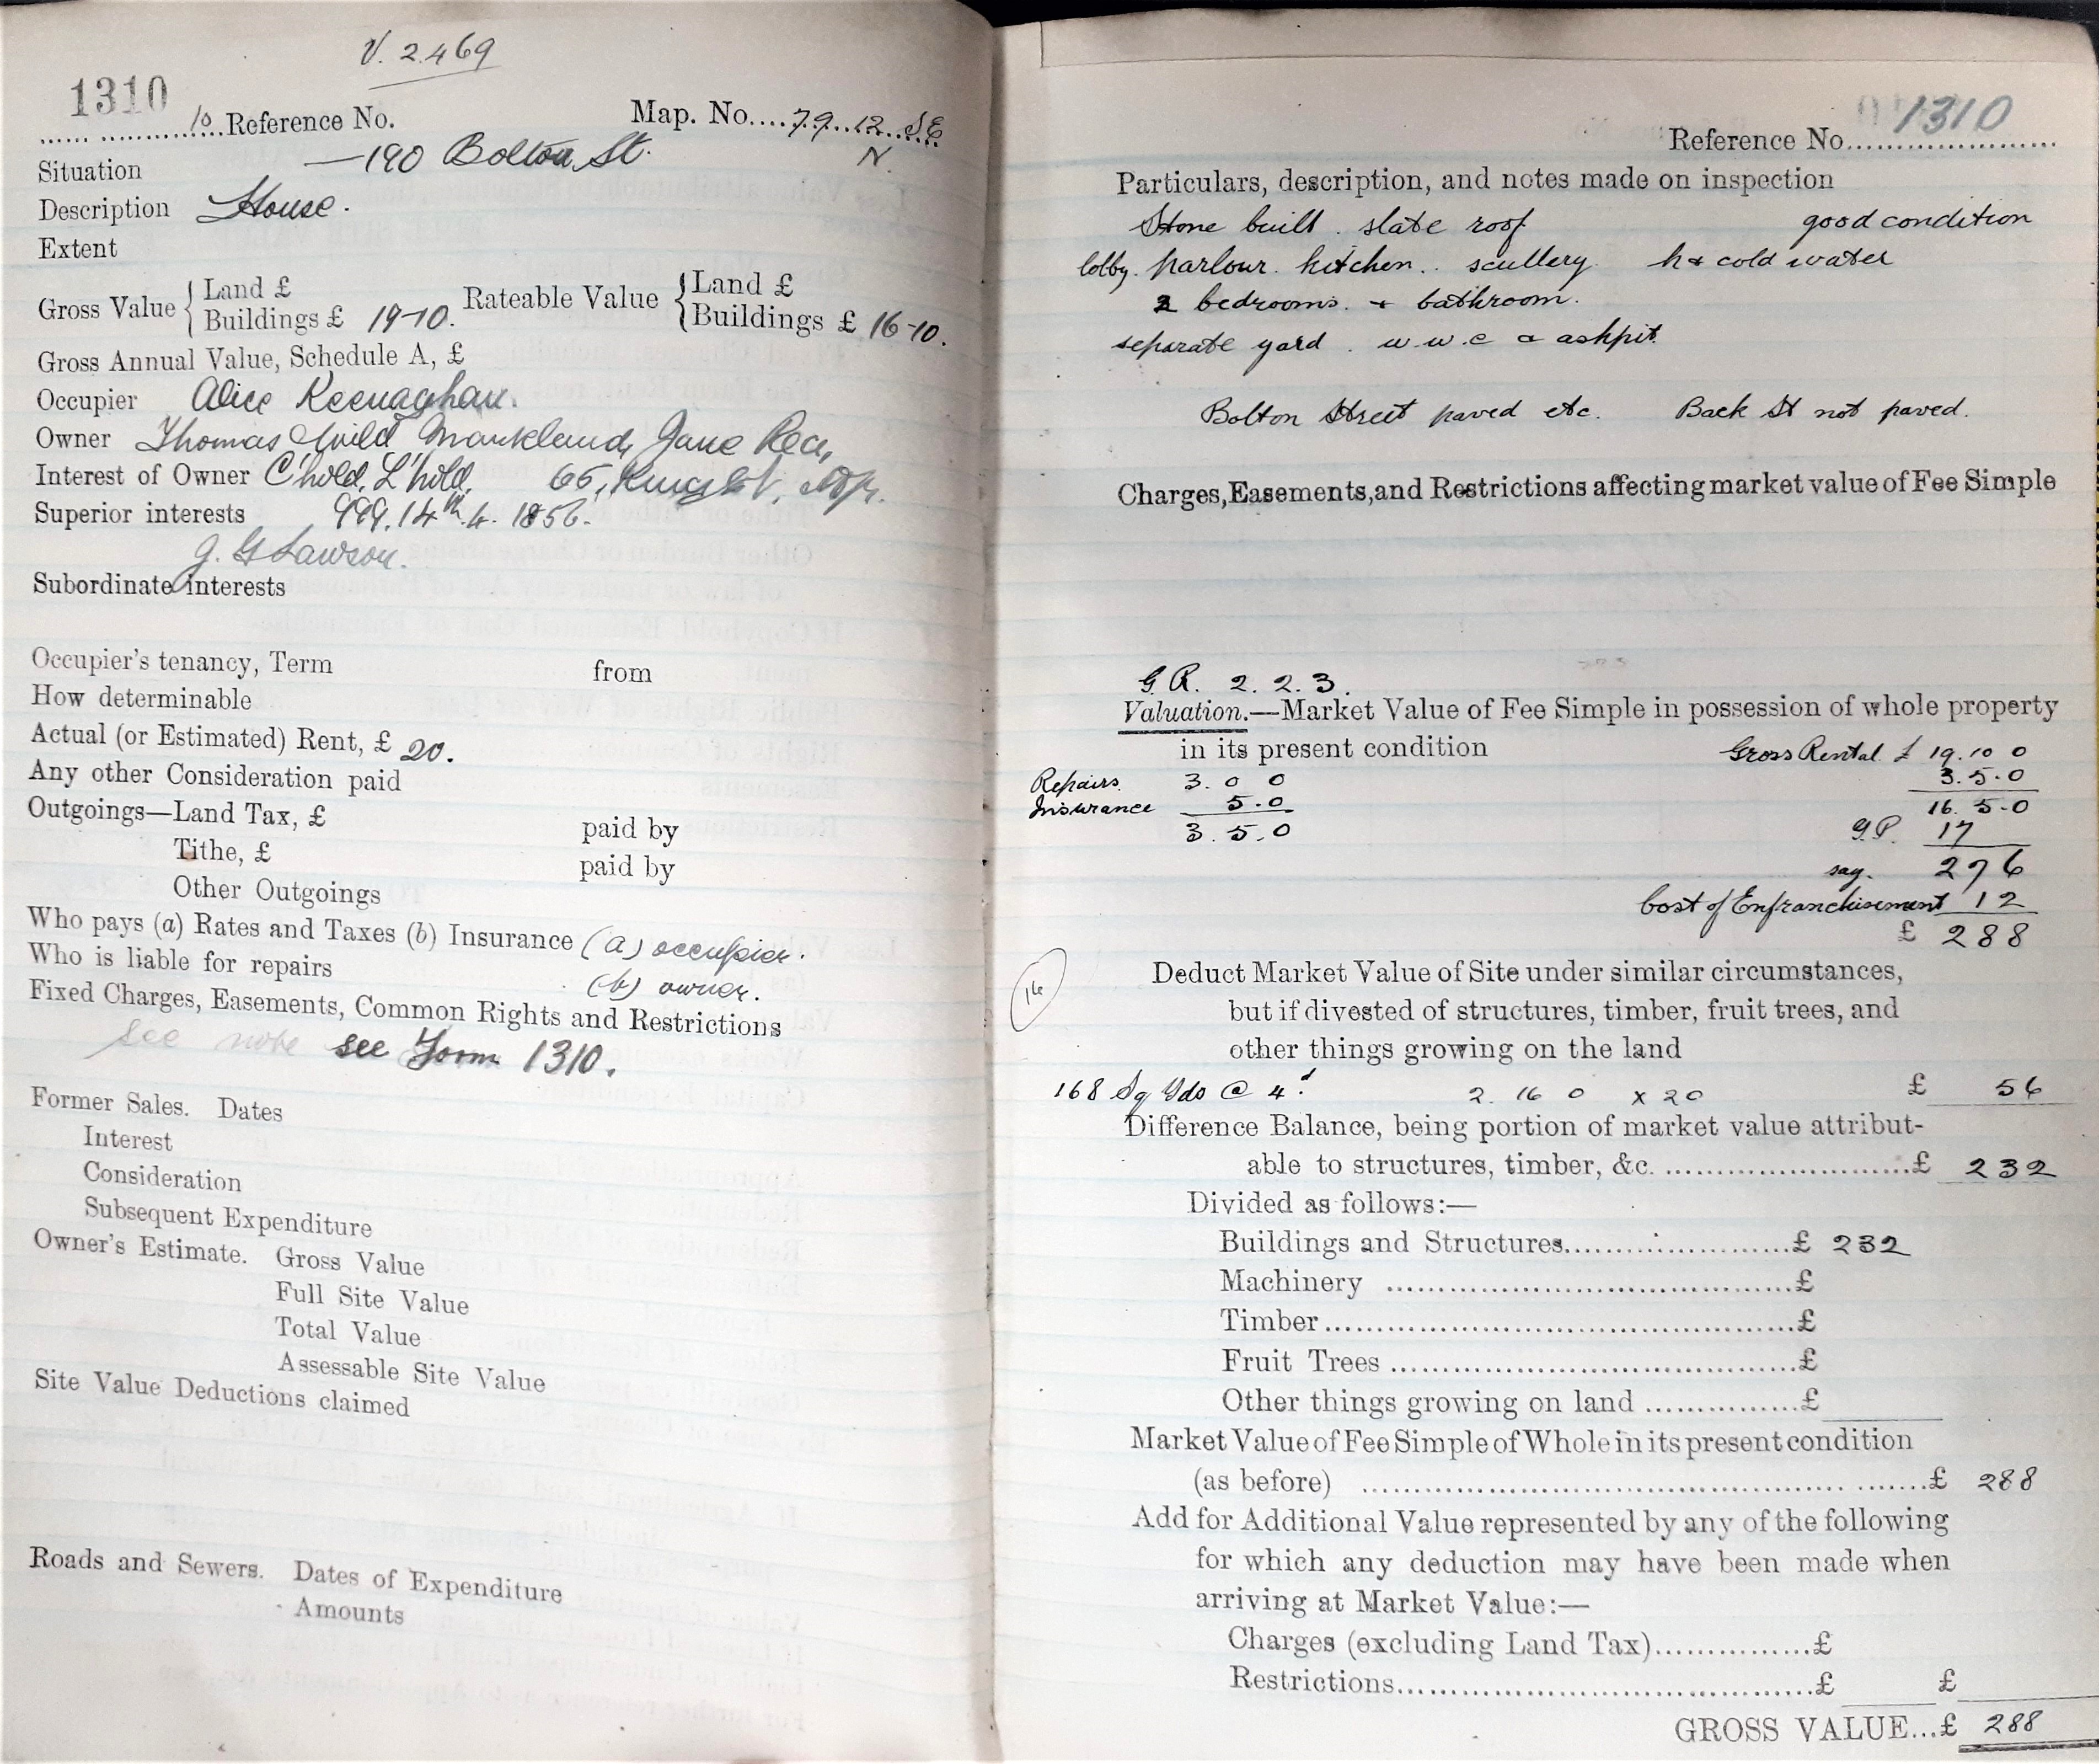 V. 2.469
1310
10 Reference No. Map. No. 79.12. SE
N.
Situation — 190 Bolton St.
Description House.
Extent
Gross Value { Land £ Rateable Value { Land £
Buildings £ 19-10. Buildings £ 16-10.
Gross Annual Value, Schedule A, £
Occupier Alice Keenaghan.
Owner Thomas Wild Markland, Jane Rea,
Interest of Owner C'hold, L'hold, 65, King St,
Superior interests 999. 14th. 4. 1856.
J. G Lawson.
Subordinate interests
Occupier's tenancy, Term from
How determinable
Actual (or Estimated) Rent, £ 20.
Any other Consideration paid
Outgoings—Land Tax, £ paid by
Tithe, £ paid by
Other Outgoings
Who pays (a) Rates and Taxes (b) Insurance (a) occupier.
Who is liable for repairs (b) owner.
Fixed Charges, Easements, Common Rights and Restrictions
see note see Form 1310.
Former Sales. Dates
Interest
Consideration
Subsequent Expenditure
Owner's Estimate. Gross Value
Full Site Value
Total Value
Assessable Site Value
Site Value Deductions claimed
Roads and Sewers. Dates of Expenditure
Amounts
Reference No. 1310
Particulars, description, and notes made on inspection
Stone built. slate roof good condition
lobby. parlour. kitchen.. scullery h & cold water
2 bedrooms. + bathroom.
separate yard. w.w.c & ashpit.
Bolton Street paved etc. Back St not paved.
Charges, Easements, and Restrictions affecting market value of Fee Simple
G.R. 2. 2. 3.
Valuation.—Market Value of Fee Simple in possession of whole property
in its present condition Gross Rental £ 19. 10 0
Repairs. 3. 0 0 3. 5. 0
Insurance 5. 0 16. 5. 0
3. 5. 0 Y.P. 17
say. 276
Cost of Enfranchisement 12
£ 288
16
Deduct Market Value of Site under similar circumstances,
but if divested of structures, timber, fruit trees, and
other things growing on the land
168 Sq Yds @ 4d 2. 16 0 x 20 £ 56
Difference Balance, being portion of market value attribut-
able to structures, timber, &c. £ 232
Divided as follows:—
Buildings and Structures £ 232
Machinery £
Timber £
Fruit Trees £
Other things growing on land £
Market Value of Fee Simple of Whole in its present condition
(as before) £ 288
Add for Additional Value represented by any of the following
for which any deduction may have been made when
arriving at Market Value:—
Charges (excluding Land Tax) £
Restrictions £ £
GROSS VALUE...£ 288